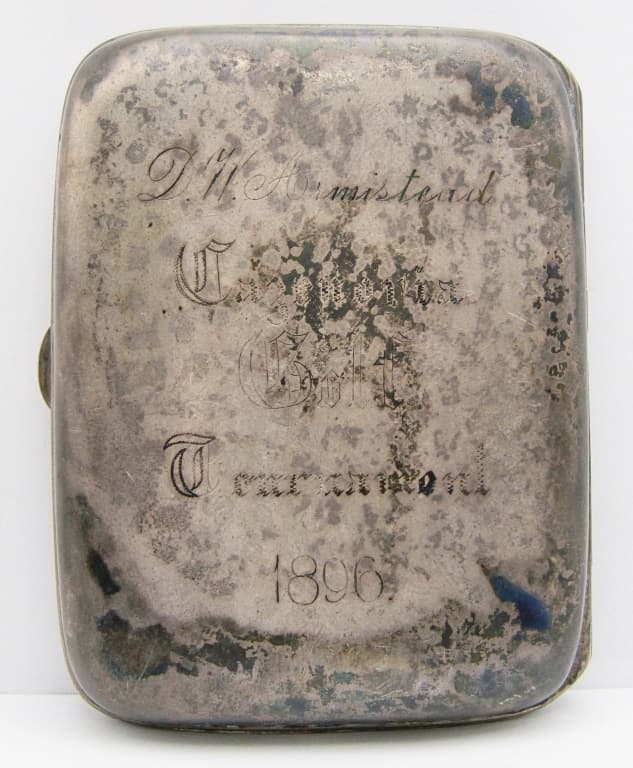 D. W. Armistead
Cazenovia
Golf
Tournament
1896.